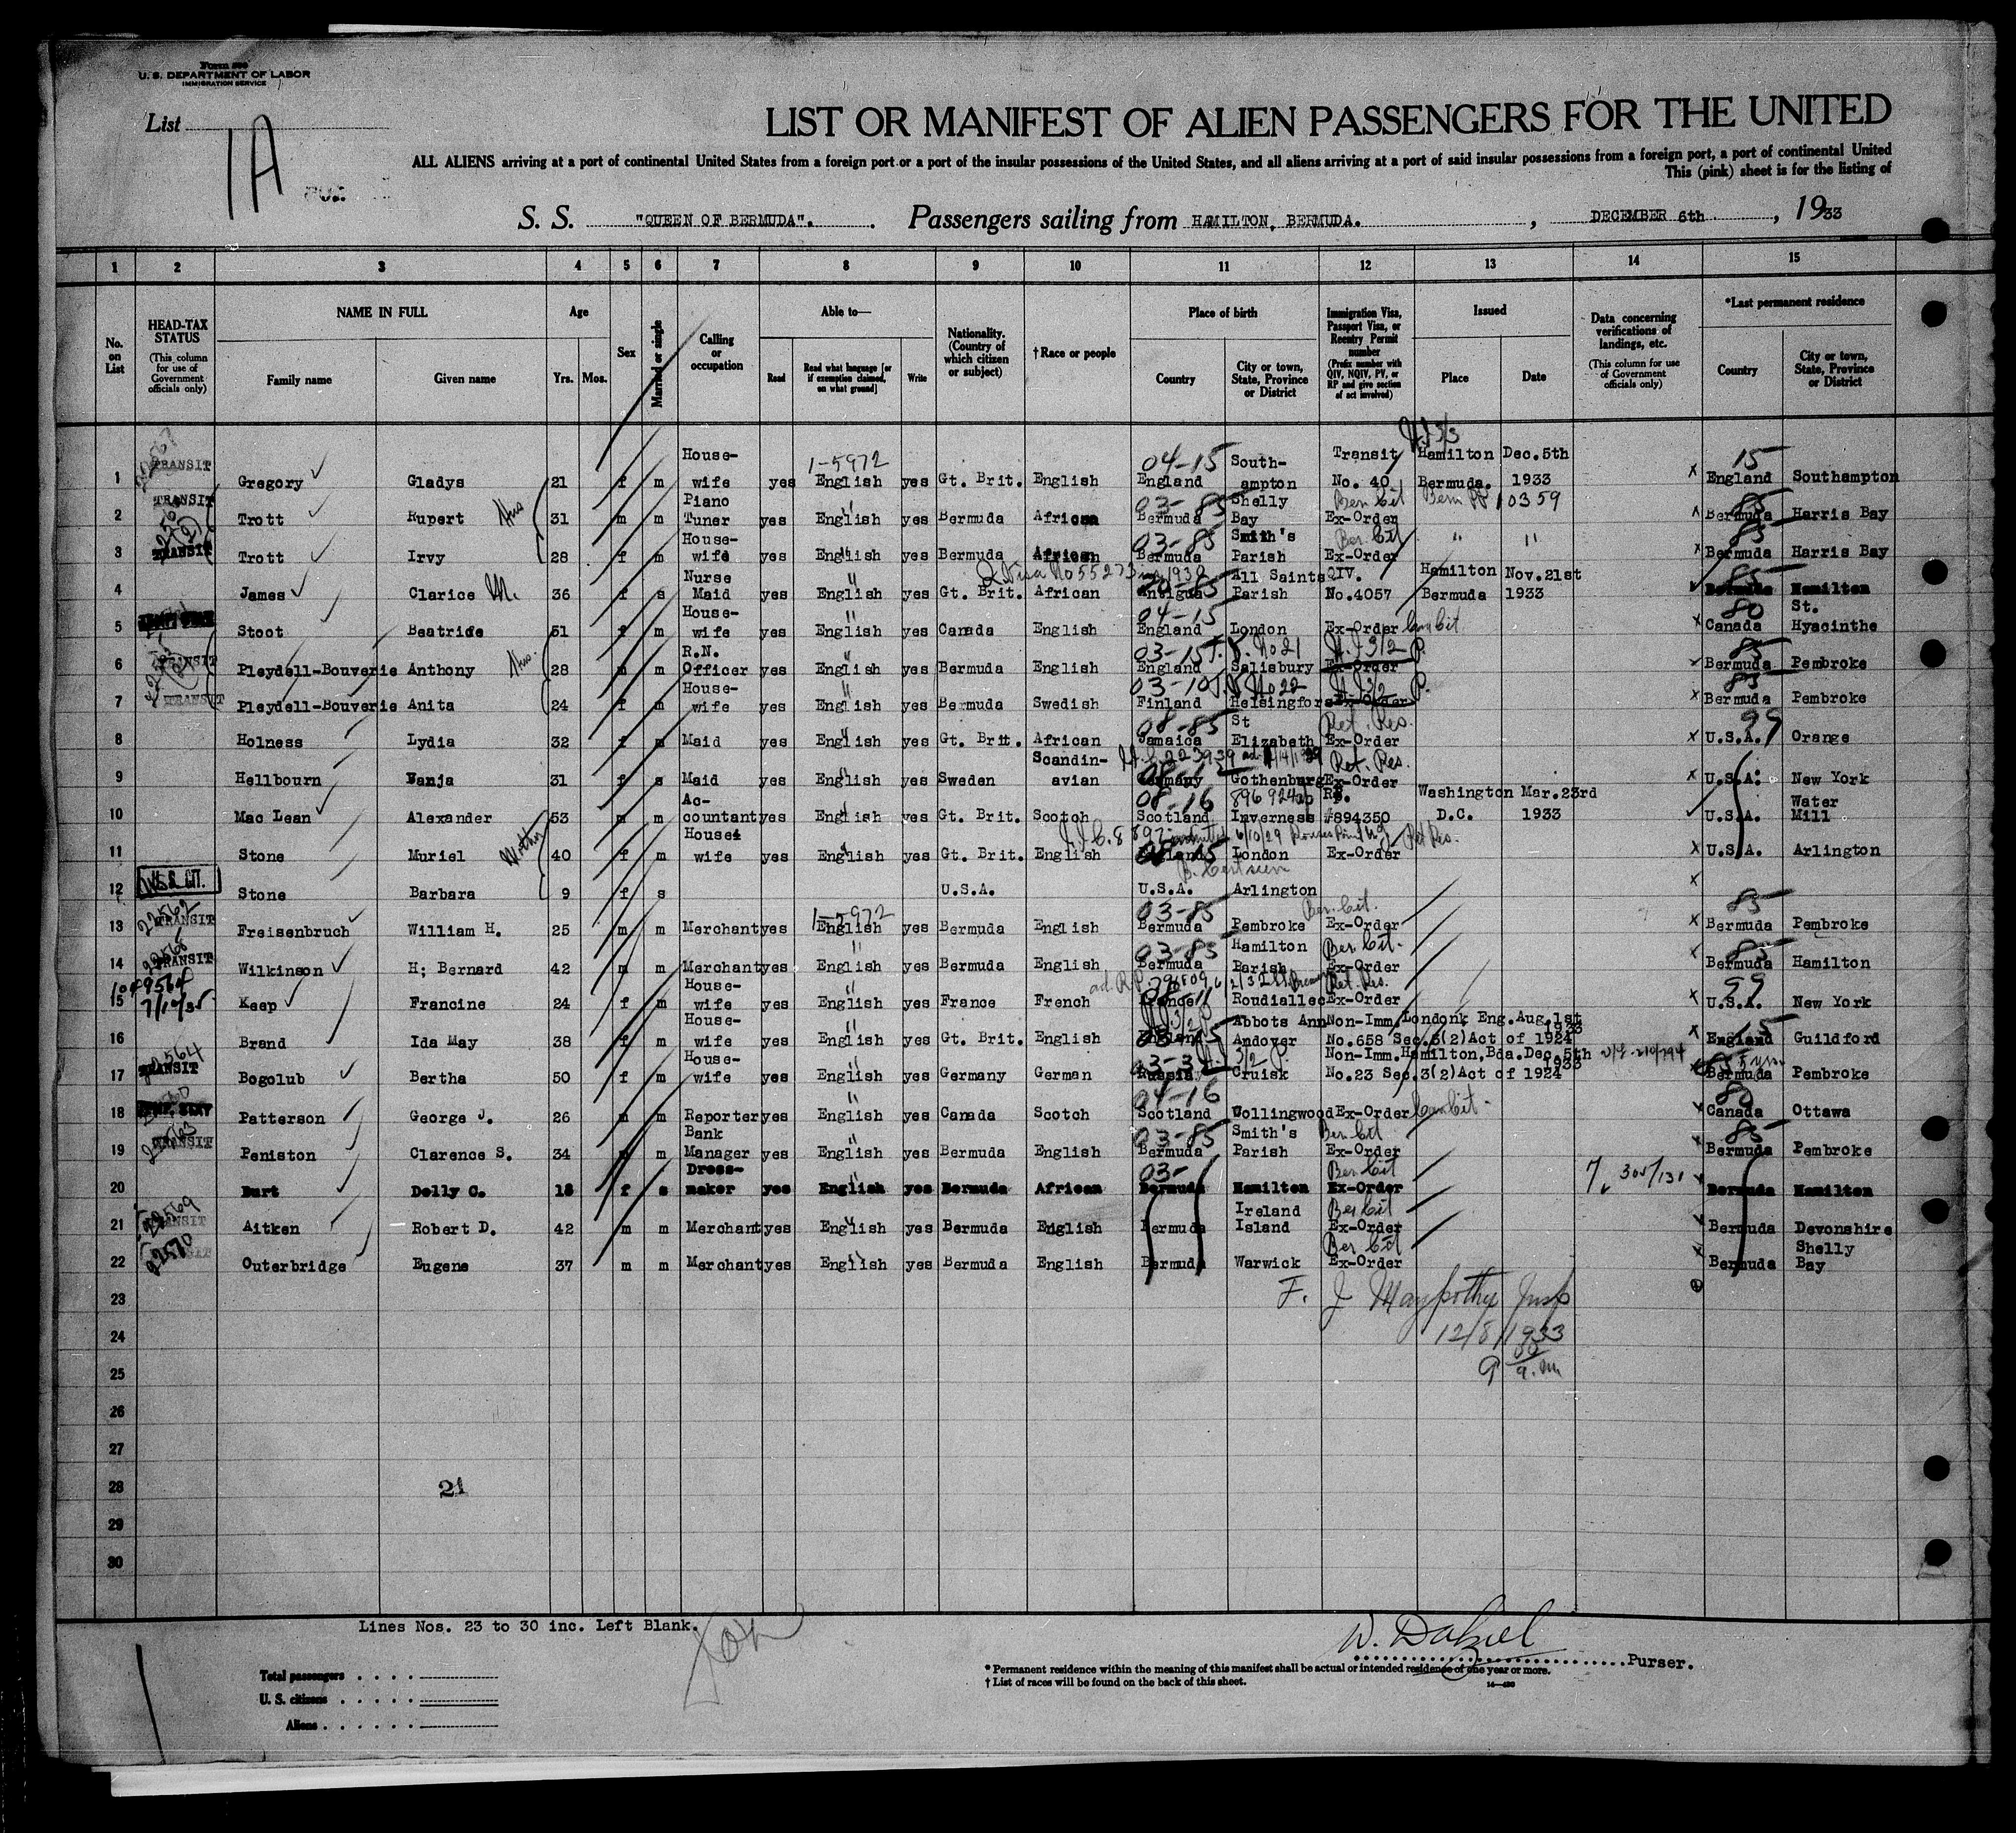 Form 500
U. S. DEPARTMENT OF LABOR
IMMIGRATION SERVICE
List
1A
LIST OR MANIFEST OF ALIEN PASSENGERS FOR THE UNITED
ALL ALIENS arriving at a port of continental United States from a foreign port or a port of the insular possessions of the United States, and all aliens arriving at a port of said insular possessions from a foreign port, a port of continental United
This (pink) sheet is for the listing of
S. S. "QUEEN OF BERMUDA". Passengers sailing from HAMILTON, BERMUDA. , DECEMBER 6th , 1933
1 2 3 4 5 6 7 8 9 10 11 12 13 14 15
No. on List
HEAD-TAX STATUS (This column for use of Government officials only)
NAME IN FULL Family name Given name
Age Yrs. Mos.
Sex
Married or single
Calling or occupation
Able to— Read Read what language [or if exemption claimed, on what ground] Write
Nationality. (Country of which citizen or subject)
†Race or people
Place of birth Country City or town, State, Province or District
Immigration Visa, Passport Visa, or Reentry Permit number (Prefix number with QIV, NQIV, PV, or RP and give section of act involved)
Issued Place Date
Data concerning verifications of landings, etc. (This column for use of Government officials only)
*Last permanent residence Country City or town, State, Province or District
1 TRANSIT Gregory Gladys 21 f m House-wife yes 1-5972 English yes Gt. Brit. English 04-15 England South-ampton Transit No. 40 Hamilton Bermuda. Dec. 5th 1933 15 England Southampton
2 TRANSIT Trott Rupert 31 m m Piano Tuner yes English yes Bermuda African 03-85 Bermuda Shelly Bay Ber Cit Ex-Order Berm PP 10359 85 Bermuda Harris Bay
3 TRANSIT Trott Irvy 28 f m House-wife yes English yes Bermuda African 03-85 Bermuda Smith's Parish Ber Cit Ex-Order " " 85 Bermuda Harris Bay
4 James Clarice 36 f s Nurse Maid yes English yes Gt. Brit. African Antigua All Saints Parish QIV. No.4057 Hamilton Bermuda Nov. 21st 1933 85 Bermuda Hamilton
5 Stoot Beatrice 51 f m House-wife yes English yes Canada English 04-15 England London Ex-Order Can Cit 80 Canada St. Hyacinthe
6 TRANSIT Pleydell-Bouverie Anthony 28 m m R.N. Officer yes English yes Bermuda English 03-15 England T.V. No 21 Salisbury Ex-Order 3/2 P. 85 Bermuda Pembroke
7 TRANSIT Pleydell-Bouverie Anita 24 f m House-wife yes English yes Bermuda Swedish 03-10 Finland T.V No 22 Helsingfors Ex-Order 3/2 P. 85 Bermuda Pembroke
8 Holness Lydia 32 f m Maid yes English yes Gt. Brit. African 08-85 Jamaica St Elizabeth Ret. Res. Ex-Order 99 U.S.A. Orange
9 Hellbourn Vanja 31 f s Maid yes English yes Sweden Scandin-avian Germany Gothenburg Ret. Res. Ex-Order U.S.A. New York
10 Mac Lean Alexander 53 m m Ac-countant yes English yes Gt. Brit. Scotch 08-16 Scotland Inverness RP. #894350 Washington D.C. Mar. 23rd 1933 U.S.A. Water Mill
11 Stone Muriel Mother 40 f m House-wife yes English yes Gt. Brit. English England London Ret Res. Ex-Order U.S.A. Arlington
12 U.S. CIT. Stone Barbara 9 f s U.S.A. U.S.A. Arlington
13 22562 TRANSIT Freisenbruch William H. 25 m m Merchant yes 1-5972 English yes Bermuda English 03-85 Bermuda Pembroke Ber. Cit. Ex-Order 85 Bermuda Pembroke
14 TRANSIT Wilkinson H; Bernard 42 m m Merchant yes English yes Bermuda English 03-85 Bermuda Hamilton Parish Ber Cit. Ex-Order 85 Bermuda Hamilton
15 Keep Francine 24 f m House-wife yes English yes France French France Roudiallec Ret. Res. Ex-Order 99 U.S.A. New York
16 Brand Ida May 38 f m House-wife yes English yes Gt. Brit. English England Abbots Ann Andover Non-Imm. London, Eng. Aug. 1st 1933 No.658 Sec.3(2)Act of 1924 15 England Guildford
17 22564 TRANSIT Bogolub Bertha 50 f m House-wife yes English yes Germany German Russia Cruisk Non-Imm. Hamilton, Bda. Dec. 5th 1933 No.23 Sec.3(2)Act of 1924 Bermuda Pembroke
18 Patterson George J. 26 m m Reporter yes English yes Canada Scotch 04-16 Scotland Collingwood Ex-Order Can Cit. 80 Canada Ottawa
19 TRANSIT Peniston Clarence S. 34 m m Bank Manager yes English yes Bermuda English 03-85 Bermuda Smith's Parish Ber Cit Ex-Order 85 Bermuda Pembroke
20 Burt Dolly C. 18 f s Dress-maker yes English yes Bermuda African 03- Bermuda Hamilton Ber Cit Ex-Order Bermuda Hamilton
21 22569 TRANSIT Aitken Robert D. 42 m m Merchant yes English yes Bermuda English Bermuda Ireland Island Ber Cit Ex-Order Bermuda Devonshire
22 22570 Outerbridge Eugene 37 m m Merchant yes English yes Bermuda English Bermuda Warwick Ber Cit Ex-Order Bermuda Shelly Bay
23
24 12/8/1933
25 9 00 a.m
26
27
28 21
29
30
Lines Nos. 23 to 30 inc. Left Blank.
Total passengers
U. S. citizens
Aliens
W. Dalziel Purser.
* Permanent residence within the meaning of this manifest shall be actual or intended residence of one year or more.
† List of races will be found on the back of this sheet.